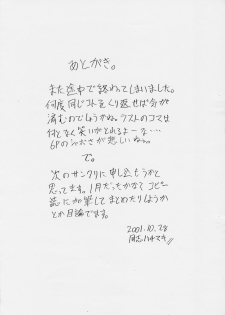 あとがき。
また途中で終わってしまいました。
何度同じコトをくり返せば気が
済むのでしょうかね。ラストのコマは
何となく笑いがとれるよーな…
6Pのシャおさが悲しいねぅ。
で。
次のサンクリに申し込もうかと
思ってます。1月だったかな？コピー
誌に加筆してまとめたりしようか
とか目論でます。
2001.10.28